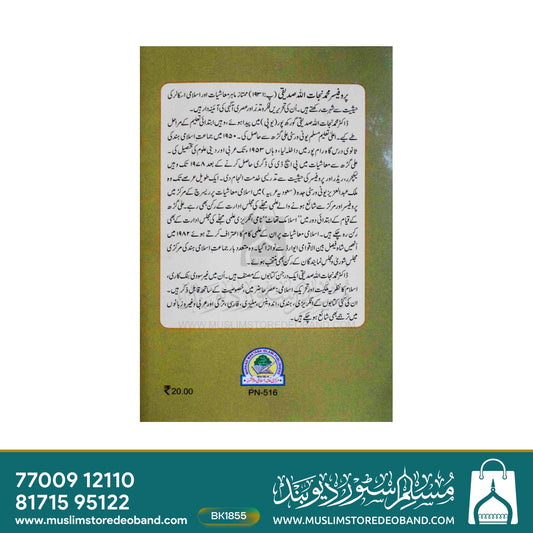 پروفیسر محمد نجات اللہ صدیقی (پ: ۱۹۳۱) ممتاز ماہر معاشیات اور اسلامی اسکالر کی
حیثیت سے شہرت رکھتے ہیں۔ اُن کی تحریریں فکر و تدبر اور عصری آگہی کی آئینہ دار ہیں۔
ڈاکٹر محمد نجات اللہ صدیقی گورکھ پور (یوپی) میں پیدا ہوئے، وہیں ابتدائی تعلیم کے مراحل
طے کیے۔ اعلیٰ تعلیم مسلم یونیورسٹی علی گڑھ سے حاصل کی۔ ۱۹۵۰ میں جماعت اسلامی ہند کی
ثانوی درس گاہ رام پور میں داخلہ لیا، وہاں ۱۹۵۳ تک عربی اور دینی علوم کی تحصیل کی۔
علی گڑھ سے معاشیات میں پی ایچ ڈی کی ڈگری حاصل کرنے کے بعد ۱۹۷۸ تک وہیں
لیکچرر، ریڈر اور پروفیسر کی حیثیت سے تدریسی خدمت انجام دی۔ ایک طویل عرصے تک وہ
ملک عبد العزیز یونی ورسٹی جدہ (سعودیہ عربیہ) میں اسلامی معاشیات پر ریسرچ کے مرکز میں
پروفیسر اور مرکز سے شائع ہونے والے علمی مجلے کی مجلس ادارت کے رکن بھی رہے۔ علی گڑھ
کے قیام کے ابتدائی دور میں 'اسلامک تھاٹ' نامی انگریزی علمی مجلے کی مجلس ادارت کے بھی
رکن رہ چکے ہیں۔ اسلامی معاشیات پر ان کے علمی کام کا اعتراف کرتے ہوئے ۱۹۸۲ میں
انھیں شاہ فیصل بین الاقوامی ایوارڈ سے نوازا گیا۔ وہ متعدد بار جماعت اسلامی ہند کی مرکزی
مجلس شوریٰ و مجلس نمایندگان کے رکن بھی منتخب ہوئے۔
ڈاکٹر نجات اللہ صدیقی ایک درجن کتابوں کے مصنف ہیں۔ ان میں غیر سودی بنک کاری،
اسلام کا نظریہ ملکیت اور تحریک اسلامی: عصر حاضر میں خصوصیت کے ساتھ قابل ذکر ہیں۔
ان کی کئی کتابوں کے انگریزی، ہندی، انڈونیشی، ملیزی، فارسی، ترکی اور عربی وغیرہ زبانوں
میں ترجمے بھی شائع ہو چکے ہیں۔
WWW.MUSLIMSTOREDEOBAND.COM
₹20.00
PN-516
77009 12110
81715 95122
www.muslimstoredeoband.com
BK1855
مسلم اسٹور دیوبند
WWW.MUSLIMSTOREDEOBAND.COM